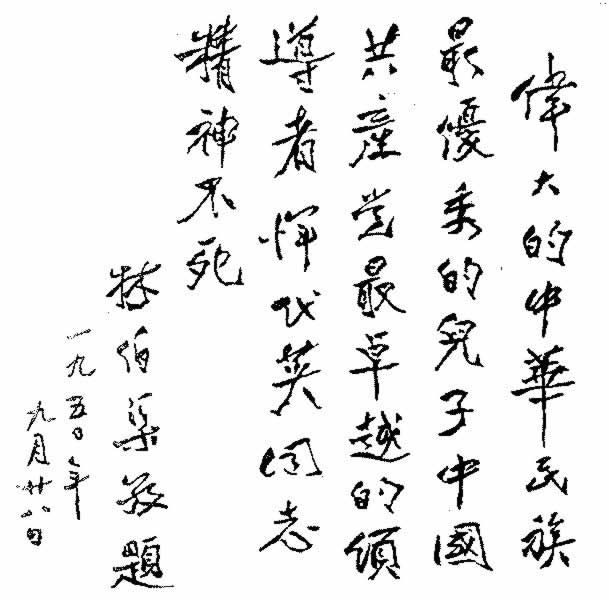 偉大的中華民族
最優秀的兒子中國
共產党最卓越的領
導者惲代英同志
精神不死
林伯渠敬題
一九五〇年
九月廿八日